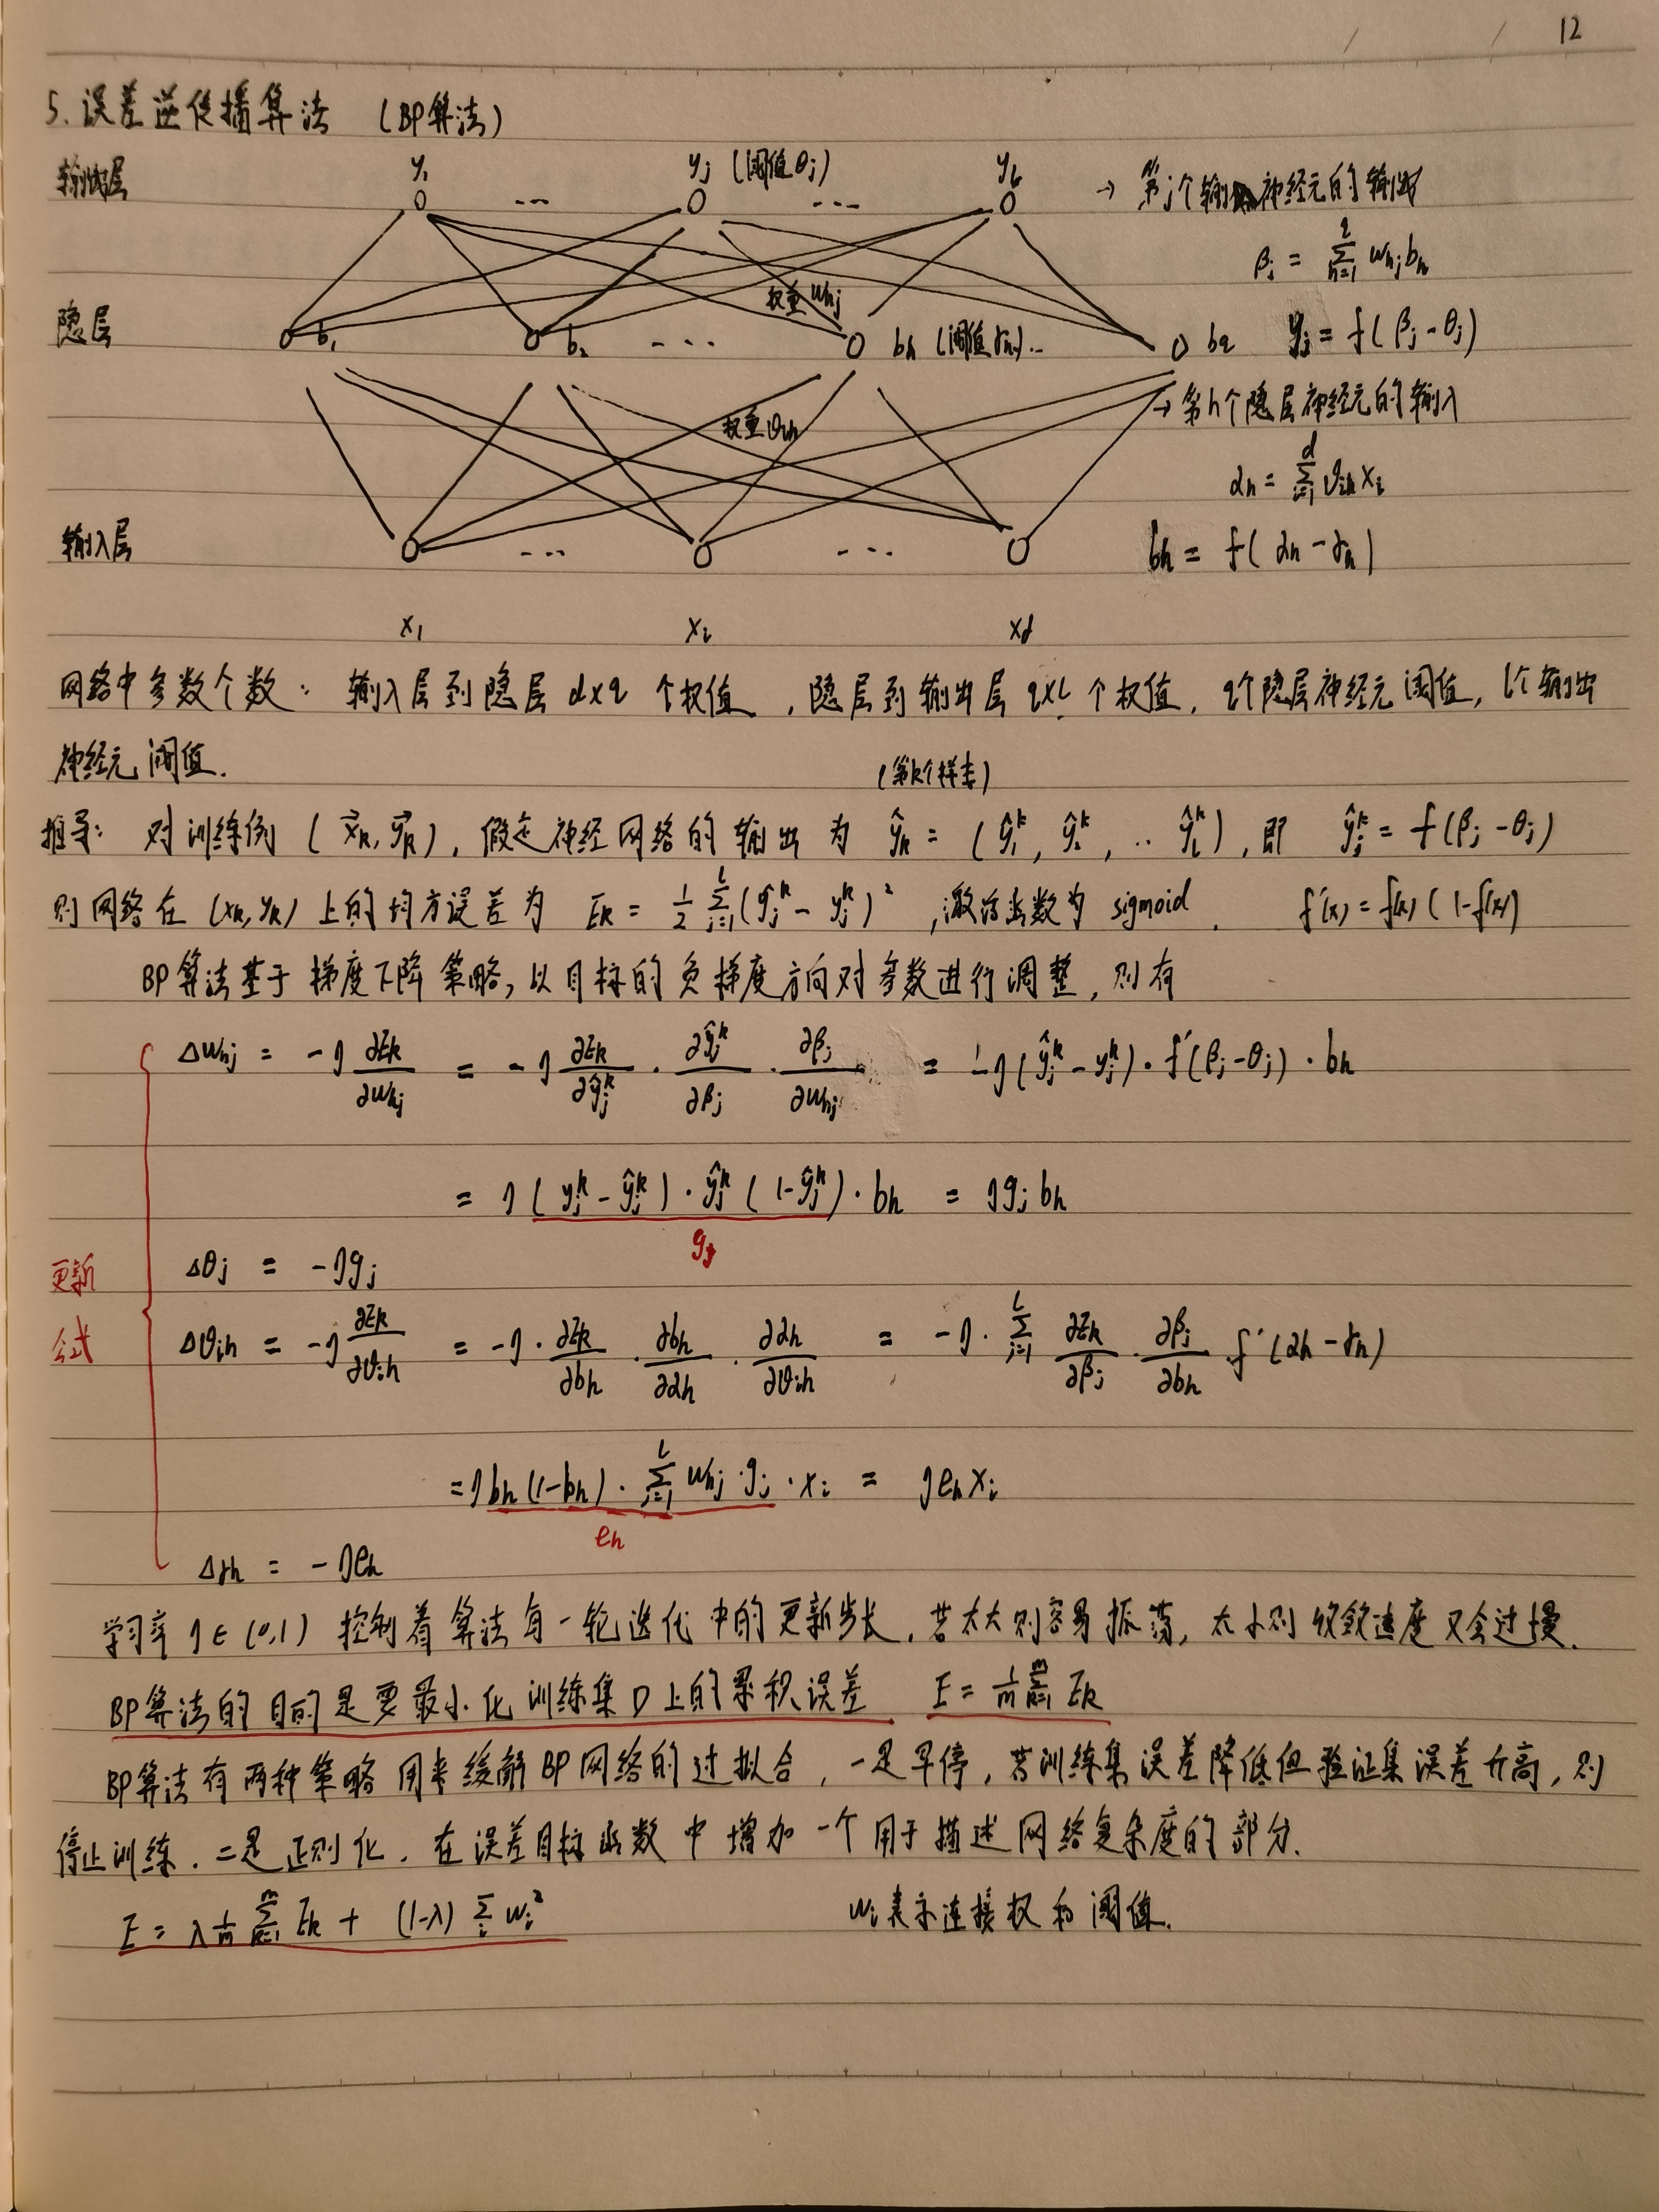 12
5. 误差逆传播算法 (BP算法)
输出层 y₁ ... yⱼ (阈值θⱼ) ... yₗ → 第j个输出神经元的输出
βⱼ = Σ_{h=1}^{q} w_{hj} b_h
权重 w_{hj}
隐层 b₁ b₂ ... b_h (阈值γ_h) .. b_q yⱼ = f(βⱼ - θⱼ)
→ 第h个隐层神经元的输入
权重 v_{ih}
α_h = Σ_{i=1}^{d} v_{ih} x_i
输入层 ... ... b_h = f(α_h - γ_h)
x₁ x_i x_d
网络中参数个数: 输入层到隐层 d×q 个权值, 隐层到输出层 q×l 个权值, q个隐层神经元阈值, l个输出
神经元阈值.
(第k个样本)
推导: 对训练例 (x⃗_k, y⃗_k), 假定神经网络的输出为 ŷ_k = (ŷ₁^k, ŷ₂^k, .. ŷ_l^k), 即 ŷⱼ^k = f(βⱼ - θⱼ)
则网络在 (x_k, y_k) 上的均方误差为 E_k = 1/2 Σ_{j=1}^{l} (ŷⱼ^k - yⱼ^k)², 激活函数为 sigmoid. f'(x) = f(x)(1-f(x))
BP算法基于梯度下降策略, 以目标的负梯度方向对参数进行调整, 则有
Δw_{hj} = -η ∂E_k/∂w_{hj} = -η ∂E_k/∂ŷⱼ^k · ∂ŷⱼ^k/∂βⱼ · ∂βⱼ/∂w_{hj} = -η(ŷⱼ^k - yⱼ^k) · f'(βⱼ - θⱼ) · b_h
= η (yⱼ^k - ŷⱼ^k) · ŷⱼ^k (1-ŷⱼ^k) · b_h = ηgⱼb_h
gⱼ
更新
Δθⱼ = -ηgⱼ
公式
Δv_{ih} = -η ∂E_k/∂v_{ih} = -η · ∂E_k/∂b_h · ∂b_h/∂α_h · ∂α_h/∂v_{ih} = -η · Σ_{j=1}^{l} ∂E_k/∂βⱼ · ∂βⱼ/∂b_h · f'(α_h - γ_h)
= ηb_h(1-b_h) · Σ_{j=1}^{l} w_{hj} · gⱼ · x_i = ηe_h x_i
e_h
Δγ_h = -ηe_h
学习率 η∈(0,1) 控制着算法每一轮迭代中的更新步长, 若太大则容易振荡, 太小则收敛速度又会过慢.
BP算法的目的是要最小化训练集D上的累积误差 E = 1/m Σ_{k=1}^{m} E_k
BP算法有两种策略用来缓解BP网络的过拟合, 一是早停, 若训练集误差降低但验证集误差升高, 则
停止训练. 二是正则化. 在误差目标函数中增加一个用于描述网络复杂度的部分.
E = λ 1/m Σ_{k=1}^{m} E_k + (1-λ) Σ_i w_i² w_i表示连接权和阈值.